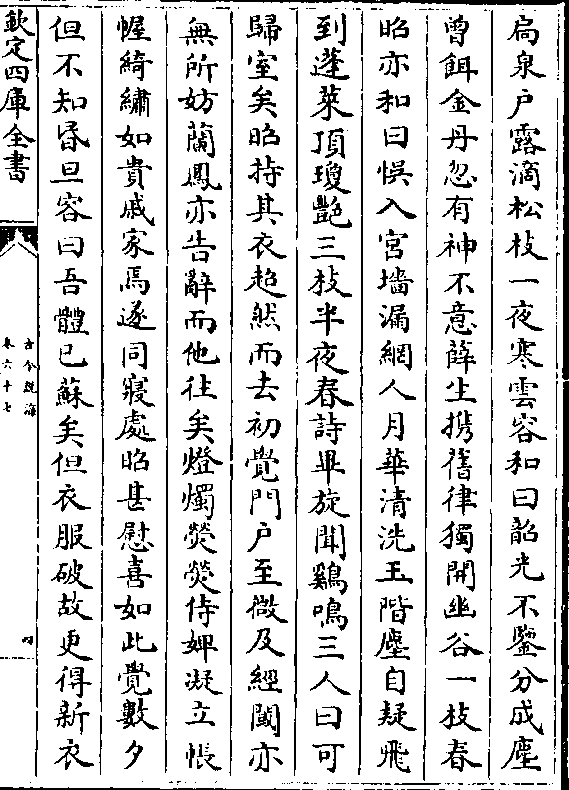 扃泉户露滴松枝一夜寒雲容和曰韶光不鑒分成塵
曾餌金丹忽有神不意薛生携舊律獨開幽谷一枝春
昭亦和曰悞入宮墻漏網人月華清洗玉階塵自疑飛
到蓬萊頂瓊艷三枝半夜春詩畢旋聞鷄鳴三人曰可
歸室矣昭持其衣超然而去初覺門户至微及經閾亦
無所妨蘭鳳亦告辭而他往矣燈燭熒熒侍婢凝立帳
幄綺繡如貴戚家焉遂同寢處昭甚慰喜如此覺數夕
但不知昏旦容曰吾體已蘇矣但衣服破故更得新衣
欽定四庫全書
古今說海
卷六十七
四